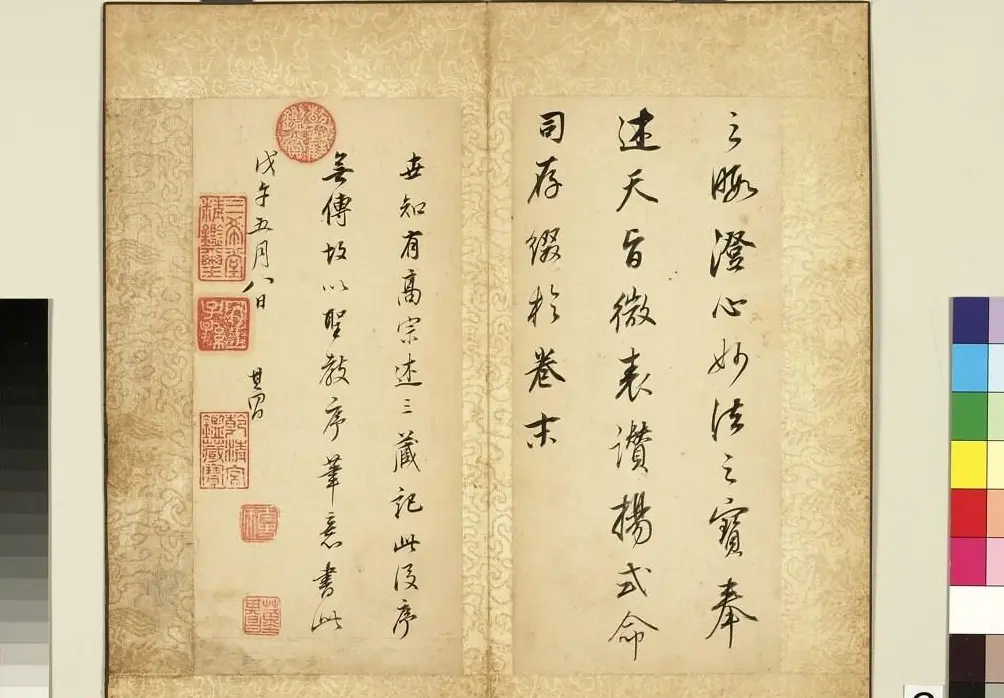 之暇澄心妙法之寶奉
述天旨微表讚揚式命
司存綴於卷末
世知有高宗述三藏記此後序
無傳故以聖教序筆意書此
戊午五月八日
其昌
乾隆鑑賞
三希堂精鑑璽
宜子孫
乾清宮鑑藏寶